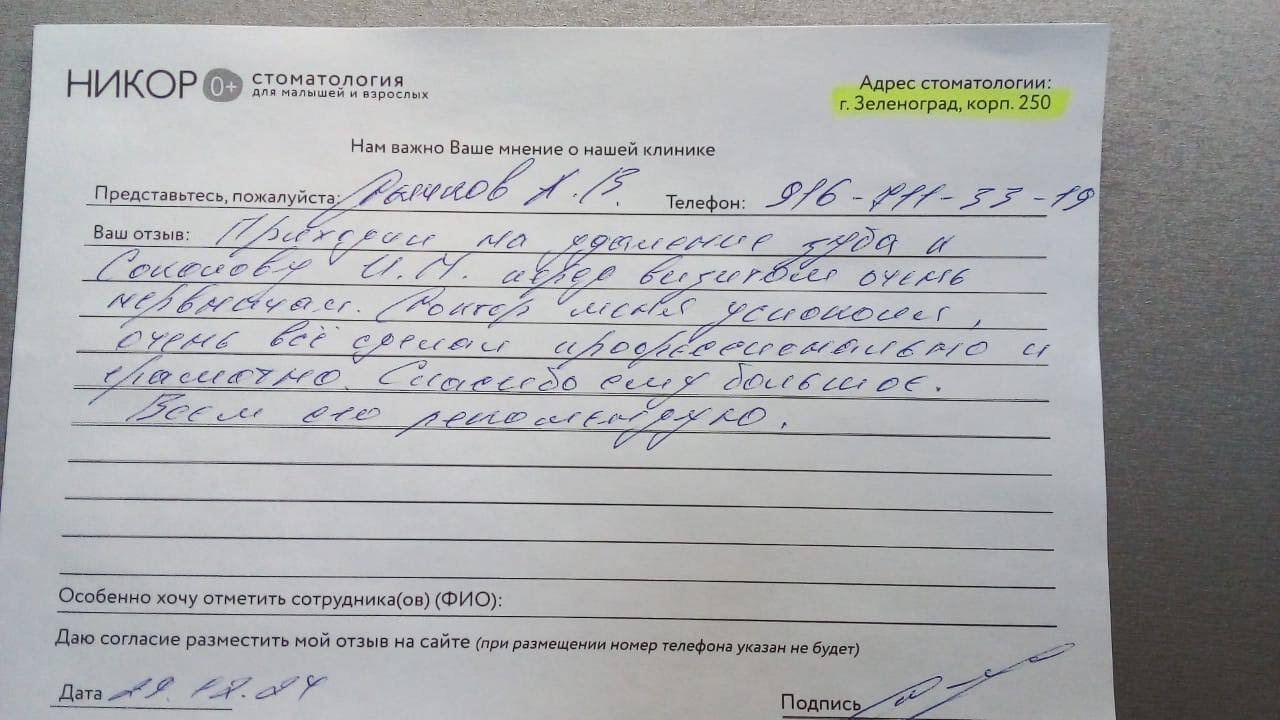 НИКОР 0+ стоматология
для малышей и взрослых
Адрес стоматологии:
г. Зеленоград, корп. 250
Нам важно Ваше мнение о нашей клинике
Представьтесь, пожалуйста: А.В. Телефон: 916-711-33-19
Ваш отзыв: Приходил на удаление зуба к
Соколову И.М. перед визитом очень
нервничал. Доктор меня успокоил,
очень всё сделал профессионально и
грамотно. Спасибо ему большое.
Всем его рекомендую.
Особенно хочу отметить сотрудника(ов) (ФИО):
Даю согласие разместить мой отзыв на сайте (при размещении номер телефона указан не будет)
Дата 29.12.24 Подпись